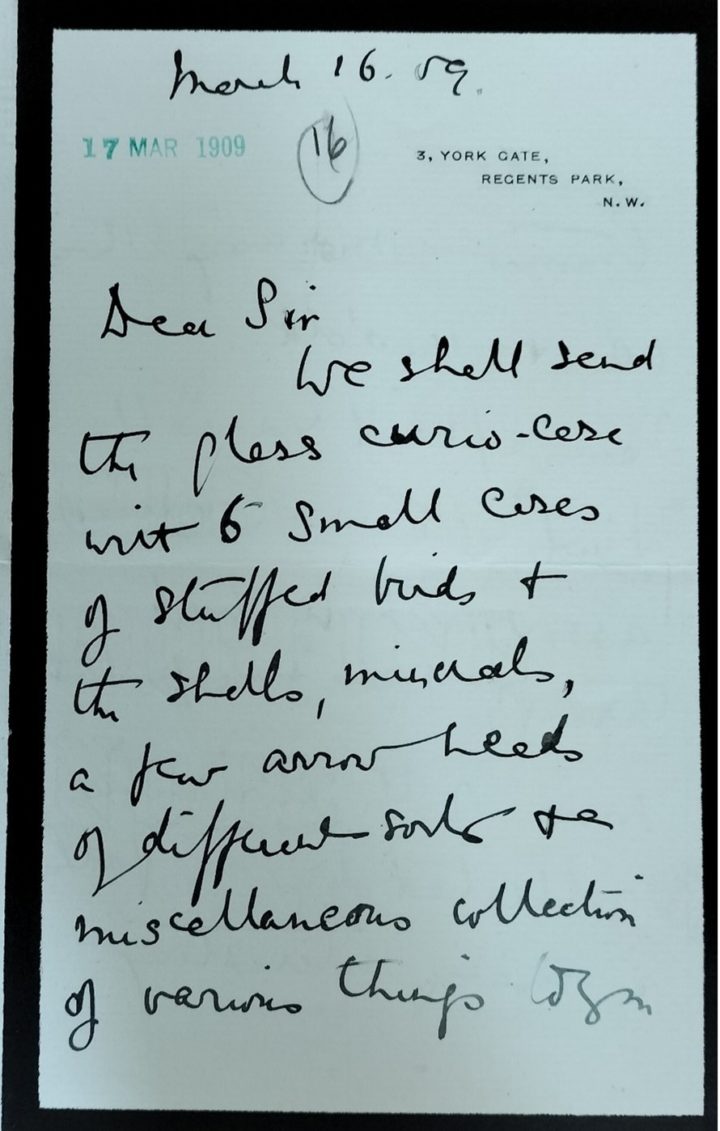 March 16. 09.
17 MAR 1909
16
3, YORK GATE,
REGENTS PARK,
N. W.
Dear Sir
We shall send
the glass curio-case
with 6 small cases
of stuffed birds +
the shells, minerals,
a few arrow heads
of different sorts + a
miscellaneous collection
of various things